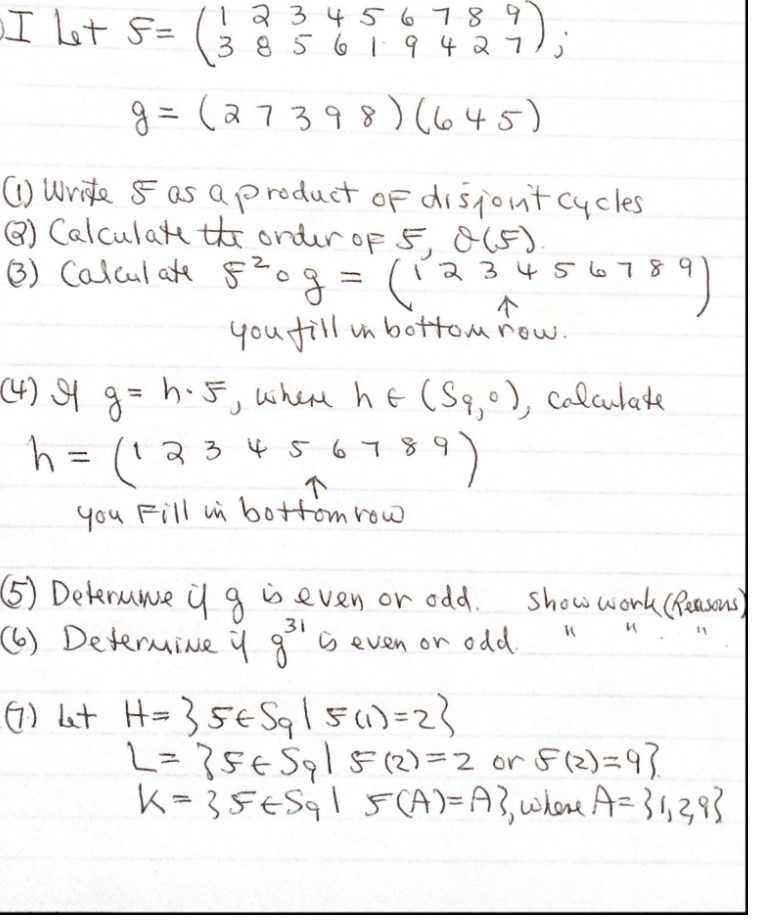 I Let f = ( 1 2 3 4 5 6 7 8 9
3 8 5 6 1 9 4 2 7 );
g = (2 7 3 9 8)(6 4 5)
(1) Write f as a product of disjoint cycles
(2) Calculate the order of f, O(f).
(3) Calculate f² ∘ g = ( 1 2 3 4 5 6 7 8 9 )
↑
you fill in bottom row.
(4) If g = h · f, where h ∈ (S₉, ∘), calculate
h = ( 1 2 3 4 5 6 7 8 9 )
↑
you Fill in bottom row
(5) Determine if g is even or odd. Show work (Reasons)
(6) Determine if g³¹ is even or odd. " " . "
(7) Let H = { f ∈ S₉ | f(1) = 2 }
L = { f ∈ S₉ | f(2) = 2 or f(2) = 9 }.
K = { f ∈ S₉ | f(A) = A }, where A = { 1, 2, 9 }